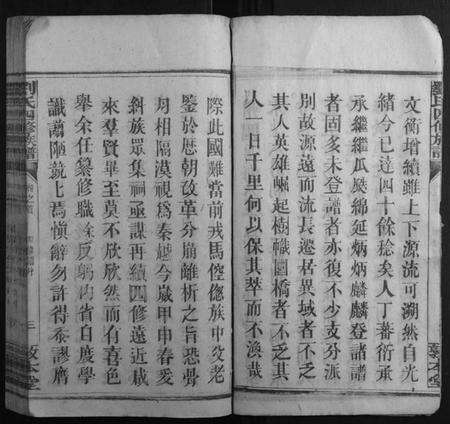 文衡增續雖上下源流可溯然自光
緒今已達四十餘稔矣人丁蕃衍承
承繼繼瓜瓞綿延炳炳麟麟登譜諸
者固多未登譜者亦復不少支分派
別故源遠而流長遷居異域者不乏
其人英雄崛起樹幟圜橋者不乏其
人一日千里何以保其萃而不渙哉
際此國難當前戎馬倥傯族中父老
鑒於歷朝改革分崩離析之旨恐骨
月相隔漠視為秦越今歲甲申春爰
糾族眾集祠亟謀再續四修遠近咸
來羣賢畢至莫不欣欣然而有喜色
舉余任纂修職余反躬內省自度學
識譾陋兢兢焉慎辭勿許得忝謬膺
劉氏四修族譜
三 敦本堂
劉氏四修族譜
敦本堂